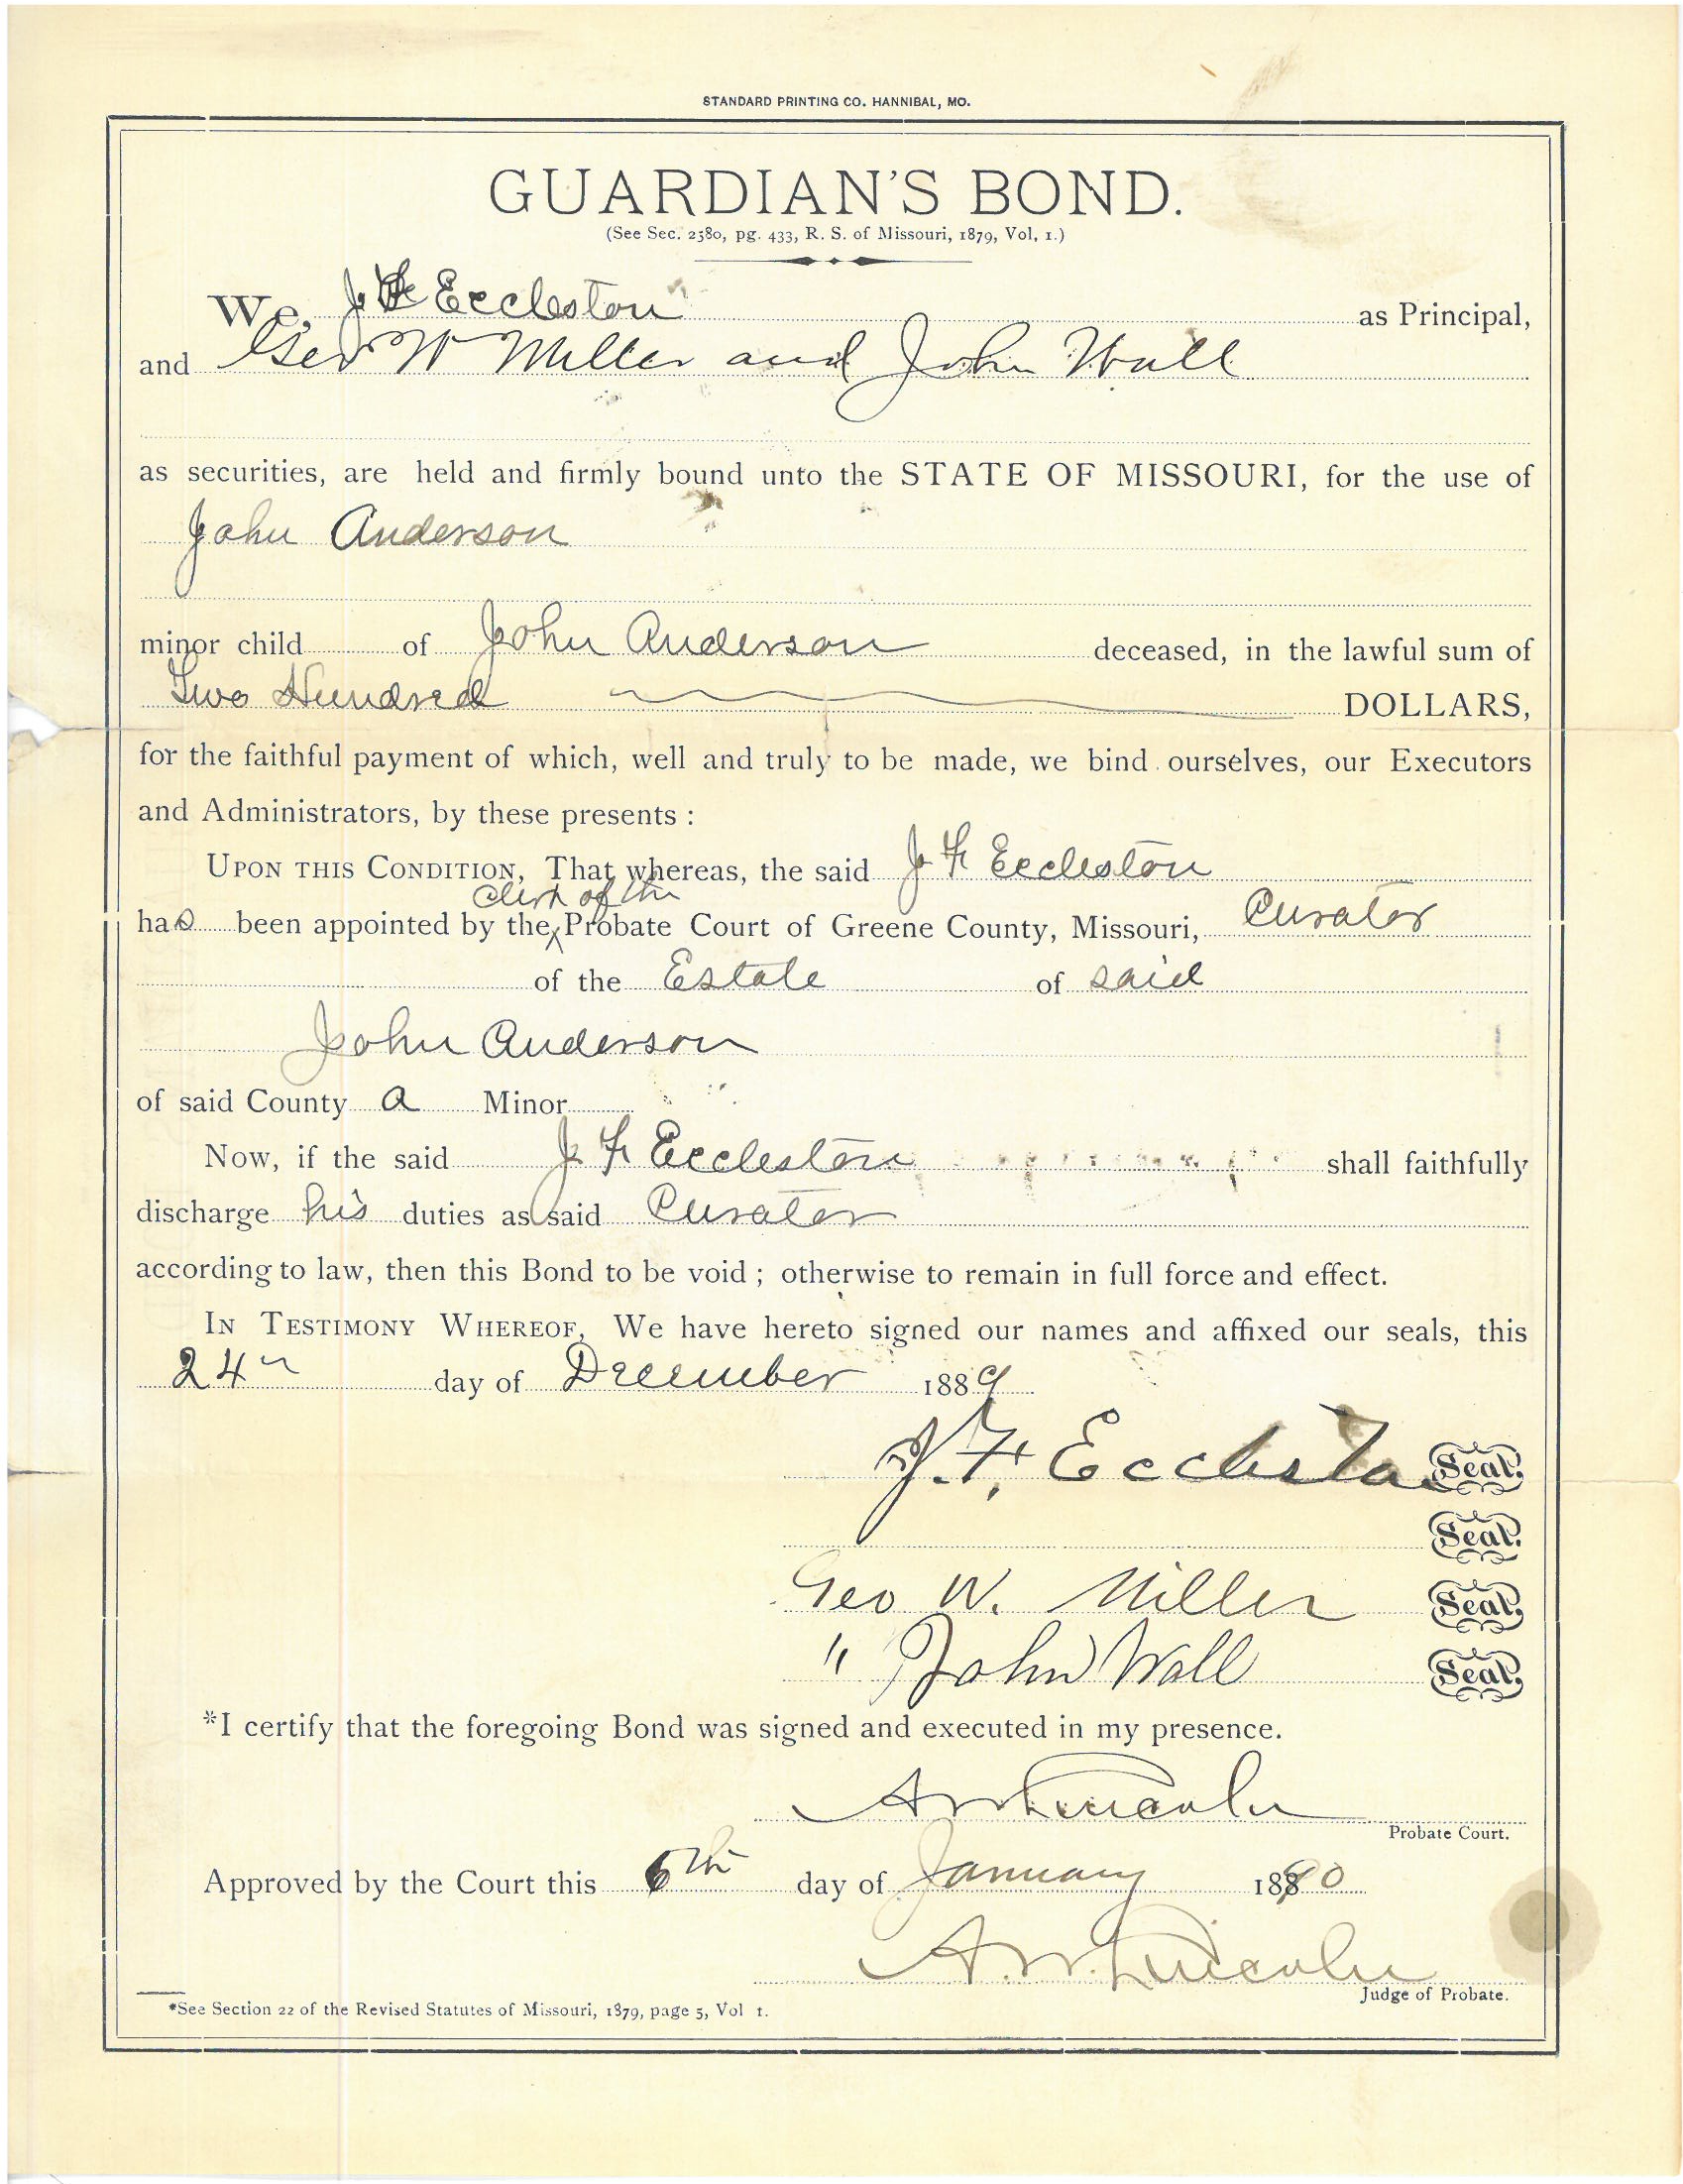 STANDARD PRINTING CO. HANNIBAL, MO.
GUARDIAN'S BOND.
(See Sec. 2580, pg. 433, R. S. of Missouri, 1879, Vol, 1.)
We, J F Eccleston as Principal,
and Geo W Miller and John Wall
as securities, are held and firmly bound unto the STATE OF MISSOURI, for the use of
John Anderson
minor child of John Anderson deceased, in the lawful sum of
Two Hundred DOLLARS,
for the faithful payment of which, well and truly to be made, we bind ourselves, our Executors
and Administrators, by these presents :
UPON THIS CONDITION, That whereas, the said J F Eccleston
clerk of the
has been appointed by the Probate Court of Greene County, Missouri, Curator
of the Estate of said
John Anderson
of said County a Minor
Now, if the said J F Eccleston shall faithfully
discharge his duties as said Curator
according to law, then this Bond to be void ; otherwise to remain in full force and effect.
IN TESTIMONY WHEREOF, We have hereto signed our names and affixed our seals, this
24" day of December 1889
J. F. Eccleston Seal.
Seal.
Geo W. Miller Seal.
" John Wall Seal.
*I certify that the foregoing Bond was signed and executed in my presence.
A W Lincoln
Probate Court.
Approved by the Court this 6th day of January 1890
A. W. Lincoln
Judge of Probate.
*See Section 22 of the Revised Statutes of Missouri, 1879, page 5, Vol 1.